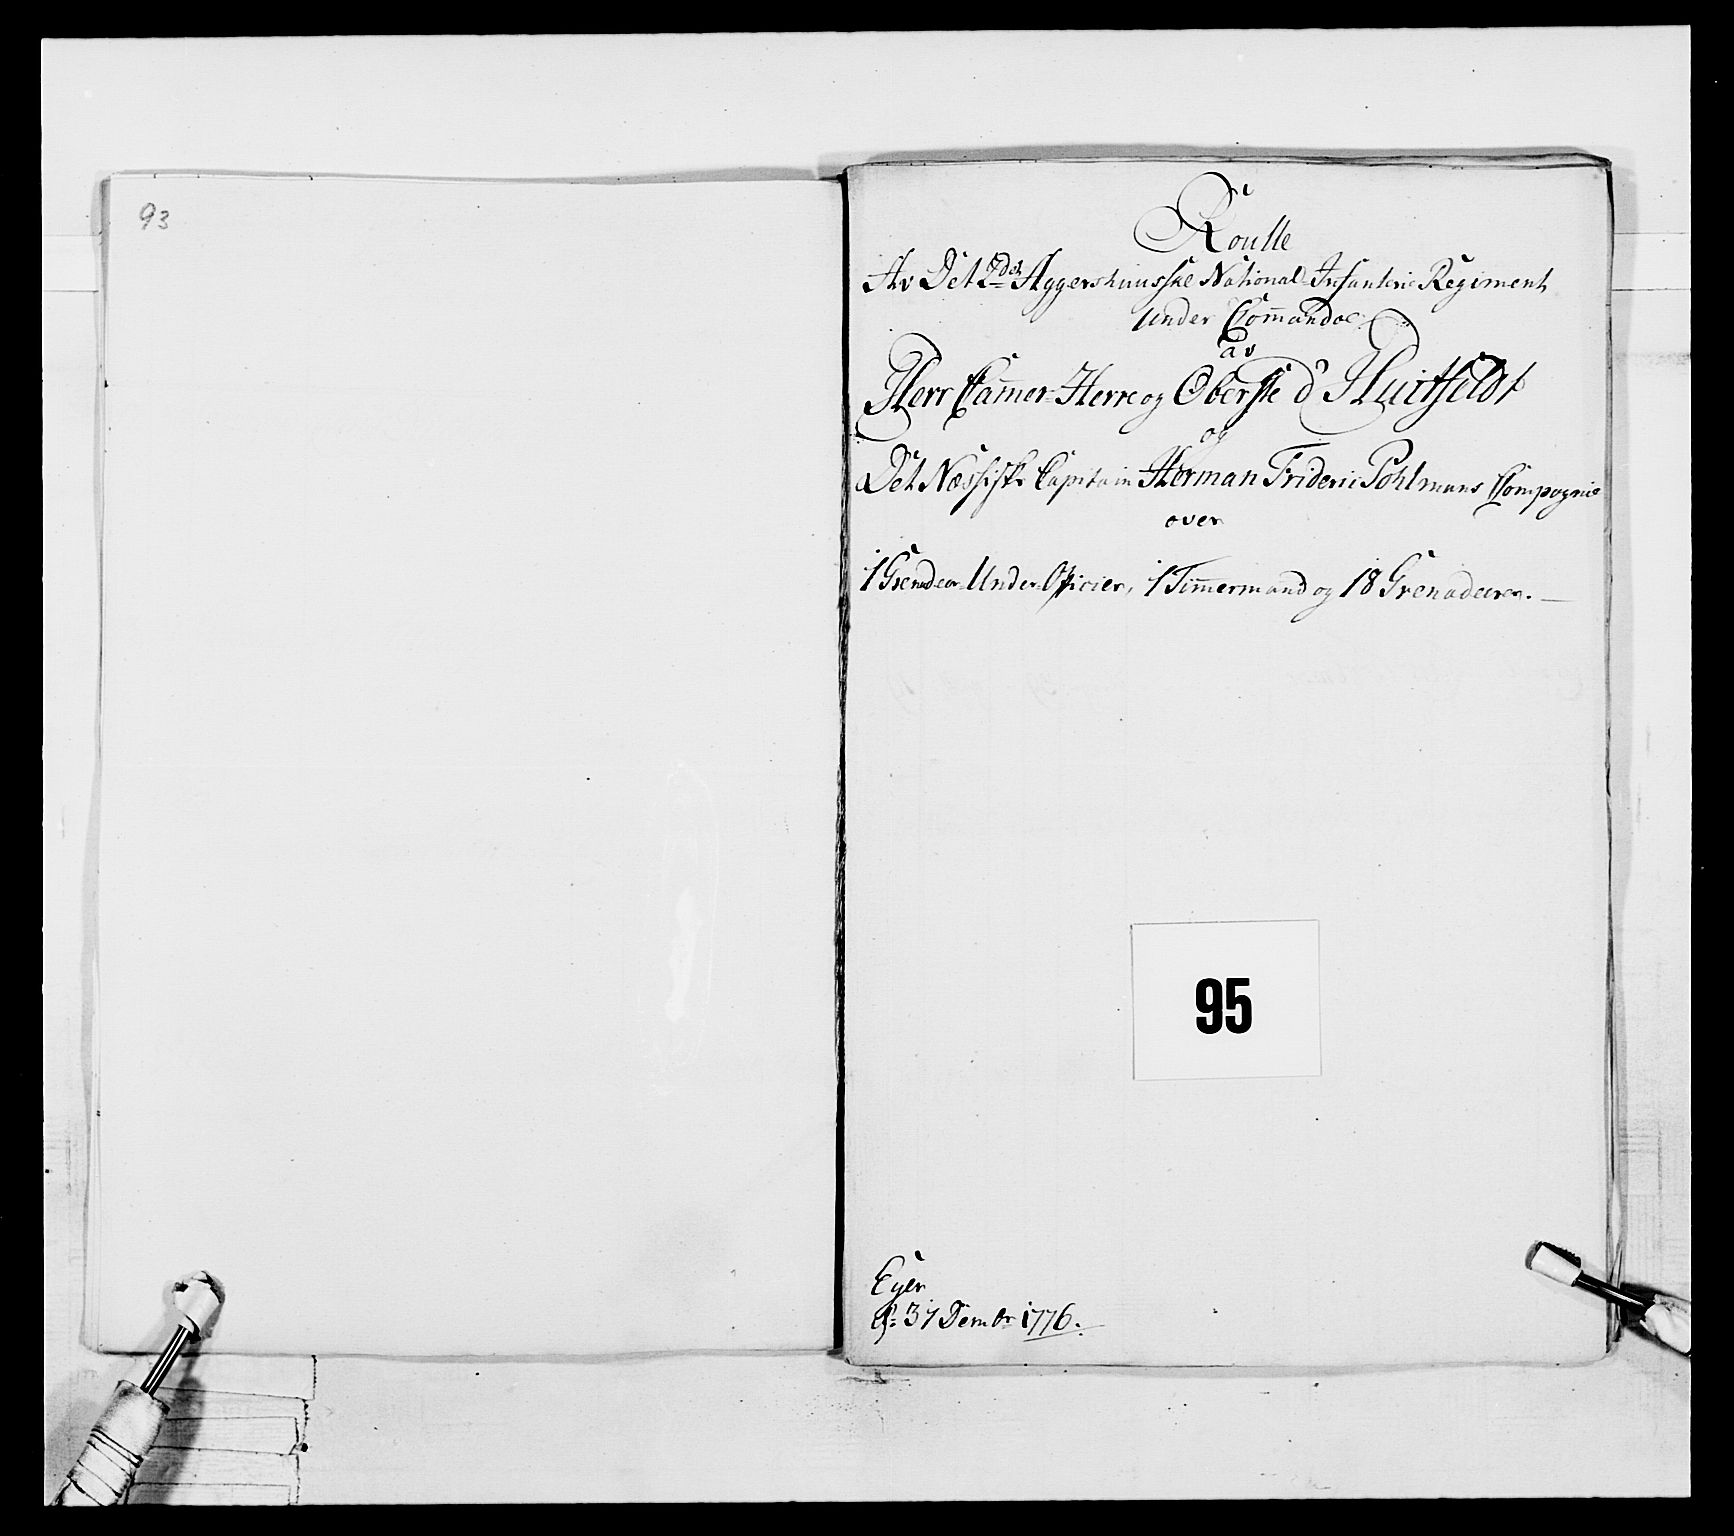 93
Roulle
Av Det 2det Aggershuusske National Infanterie Regiment
Under Com̄andoe
av
Herr Cam̄er-Herre og Oberste d'Huitfeldt
og
Det Næssiske Capitain Herman Frideric Pohlmans Compagnie
over
1 Grenadeer-Under-Officier, 1 Tim̄ermand og 18 Grenadeerer. —
95
Eger
31 Dembr 1776.